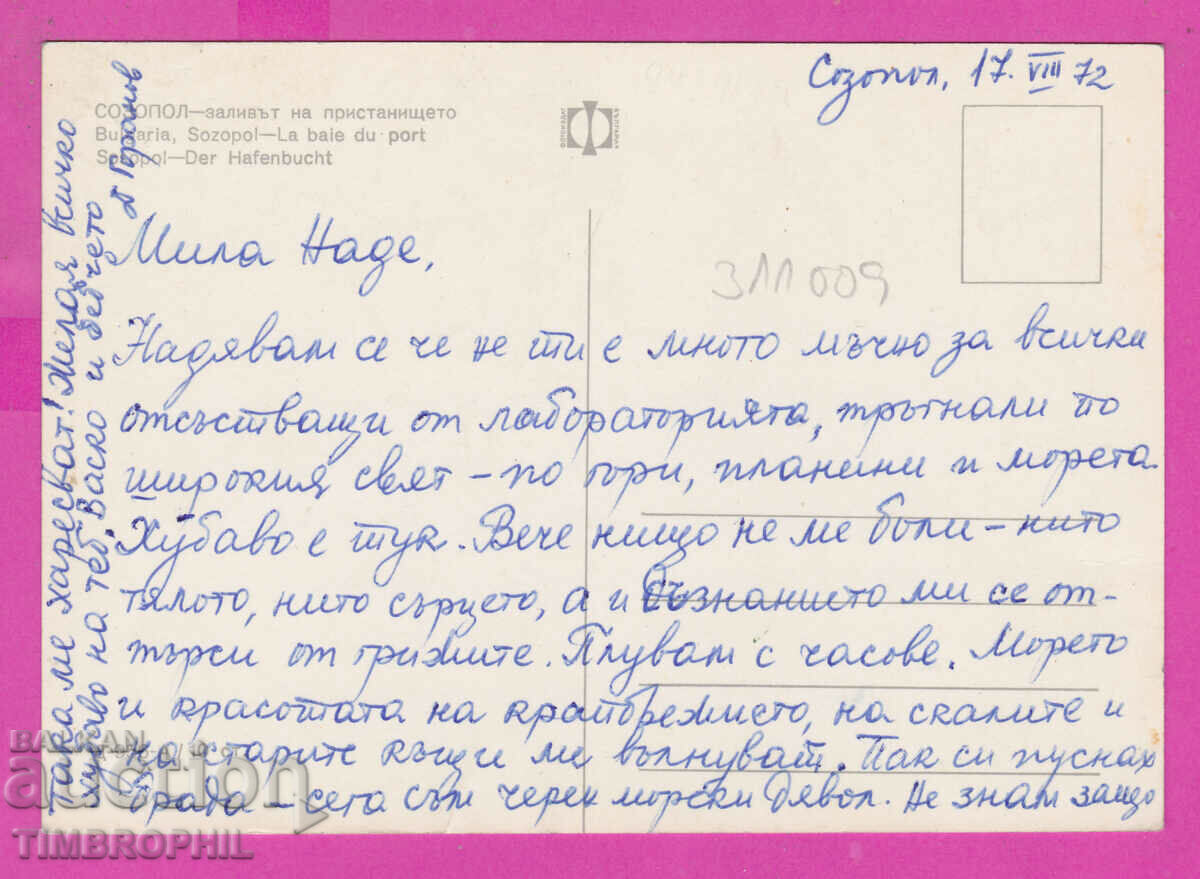 Созопол, 17. VIII 72
СОЗОПОЛ—заливът на пристанището
Bulgaria, Sozopol—La baie du port
Sozopol—Der Hafenbucht
ФОТОИЗДАТ
БЪЛГАРИЯ
311009
Мила Наде,
Надявам се че не ти е много мъчно за всички
отсъстващи от лабораторията, тръгнали по
широкия свят – по гори, планини и морета.
Хубаво е тук. Вече нищо не ме боли – нито
тялото, нито сърцето, а и съзнанието ми се от-
търси от грижите. Плувам с часове. Морето
и красотата на крайбрежието, на скалите и
на старите къщи ме вълнуват. Пак си пуснах
брада – сега съм черен морски дявол. Не знам защо
Така ме харесват! Желая всичко
хубаво на теб, Васко и бебчето
BALKAN
auction
TIMBROPHIL